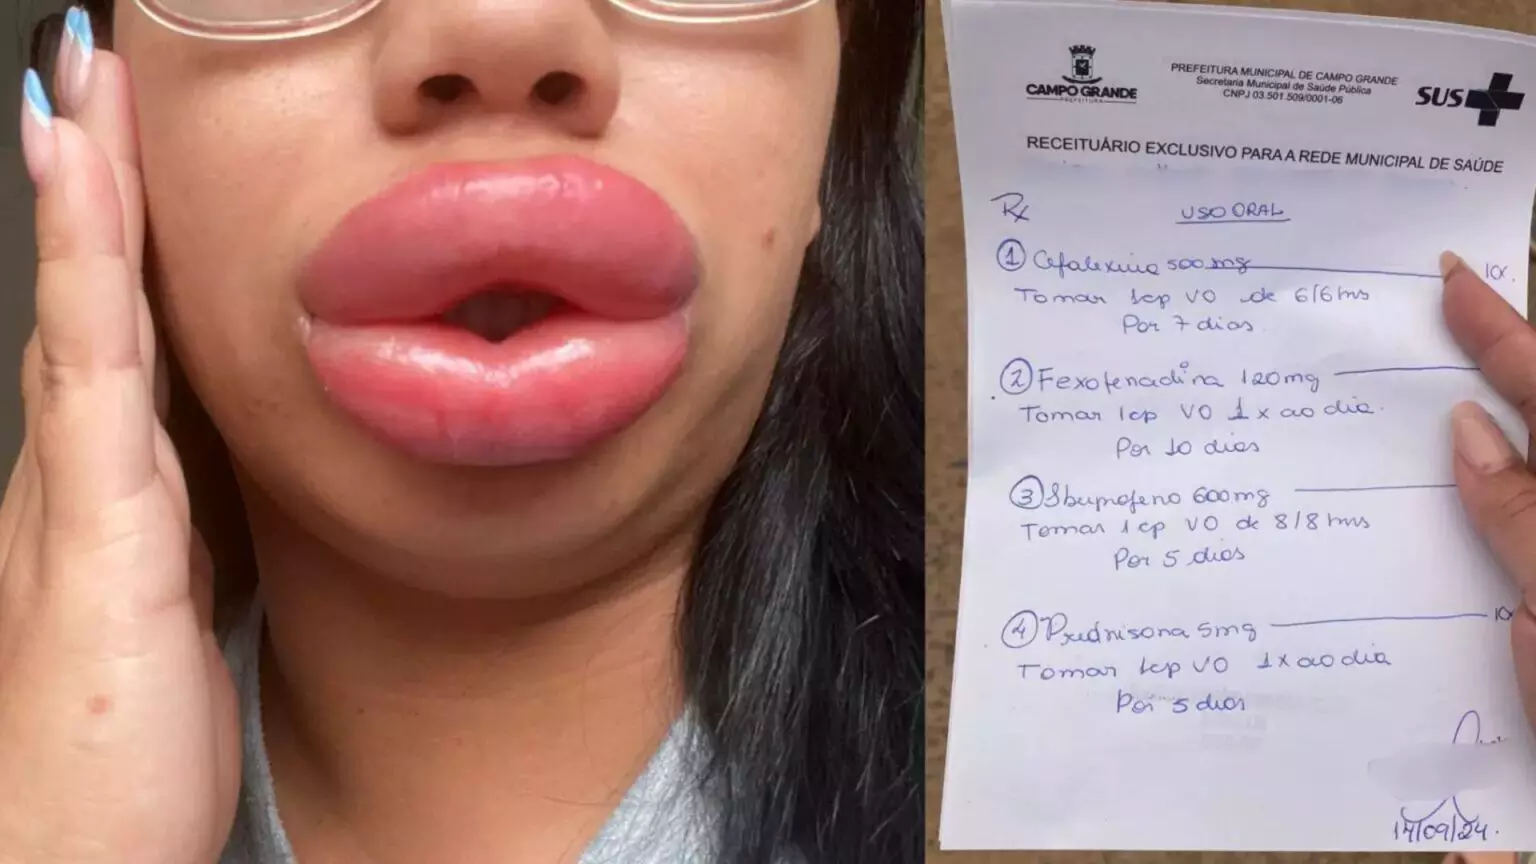 CAMPO GRANDE
PREFEITURA
PREFEITURA MUNICIPAL DE CAMPO GRANDE
Secretaria Municipal de Saúde Pública
CNPJ 03.501.509/0001-06
SUS
RECEITUÁRIO EXCLUSIVO PARA A REDE MUNICIPAL DE SAÚDE
Rx USO ORAL
1 Cefalexina 500mg 1cx.
Tomar 1cp VO de 6/6 hrs
Por 7 dias
2 Fexofenadina 120mg
Tomar 1cp VO 1x ao dia.
Por 10 dias
3 Ibuprofeno 600mg
Tomar 1cp VO de 8/8 hrs
Por 5 dias
4 Prednisona 5mg 1cx
Tomar 1cp VO 1x ao dia
Por 5 dias
14/09/24.